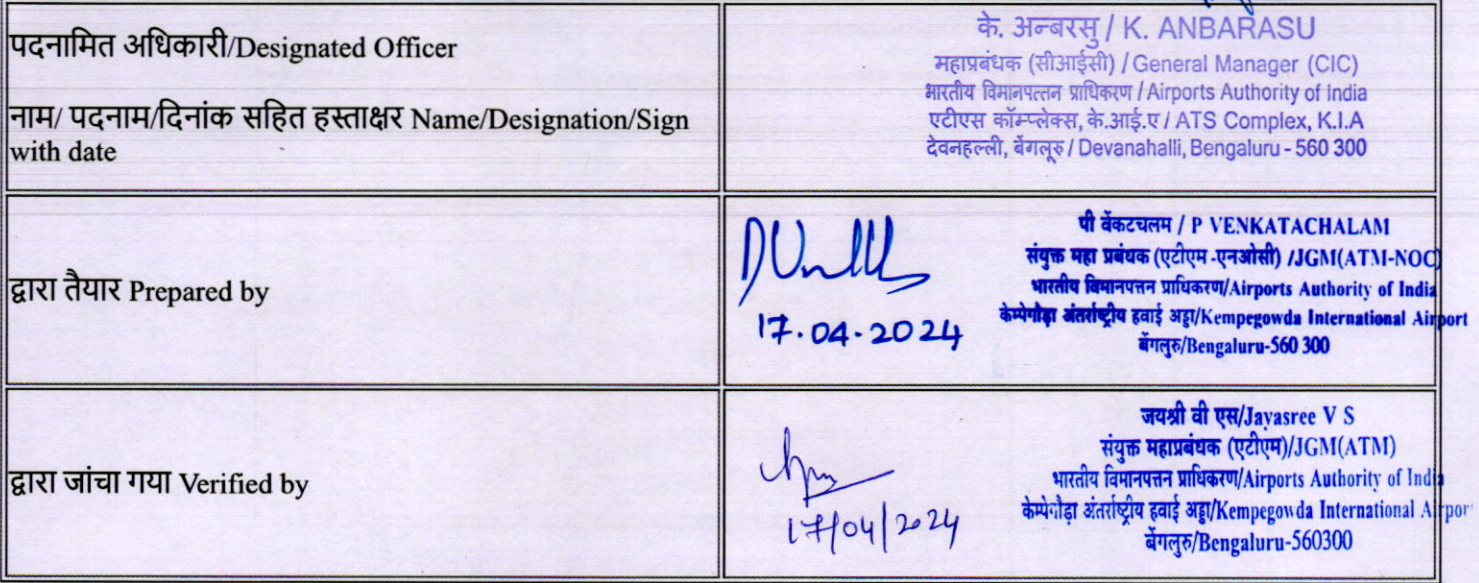 पदनामित अधिकारी/Designated Officer
नाम/ पदनाम/दिनांक सहित हस्ताक्षर Name/Designation/Sign
with date
के. अन्बरसु / K. ANBARASU
महाप्रबंधक (सीआईसी) / General Manager (CIC)
भारतीय विमानपत्तन प्राधिकरण / Airports Authority of India
एटीएस कॉम्प्लेक्स, के.आई.ए / ATS Complex, K.I.A
देवनहल्ली, बेंगलूरु / Devanahalli, Bengaluru - 560 300
द्वारा तैयार Prepared by
17.04.2024
पी वेंकटचलम / P VENKATACHALAM
संयुक्त महा प्रबंधक (एटीएम -एनओसी) /JGM(ATM-NOC)
भारतीय विमानपत्तन प्राधिकरण/Airports Authority of India
केम्पेगौड़ा अंतर्राष्ट्रीय हवाई अड्डा/Kempegowda International Airport
बेंगलुरु/Bengaluru-560 300
द्वारा जांचा गया Verified by
17/04/2024
जयश्री वी एस/Jayasree V S
संयुक्त महाप्रबंधक (एटीएम)/JGM(ATM)
भारतीय विमानपत्तन प्राधिकरण/Airports Authority of India
केम्पेगौड़ा अंतर्राष्ट्रीय हवाई अड्डा/Kempegowda International Airpor
बेंगलुरु/Bengaluru-560300